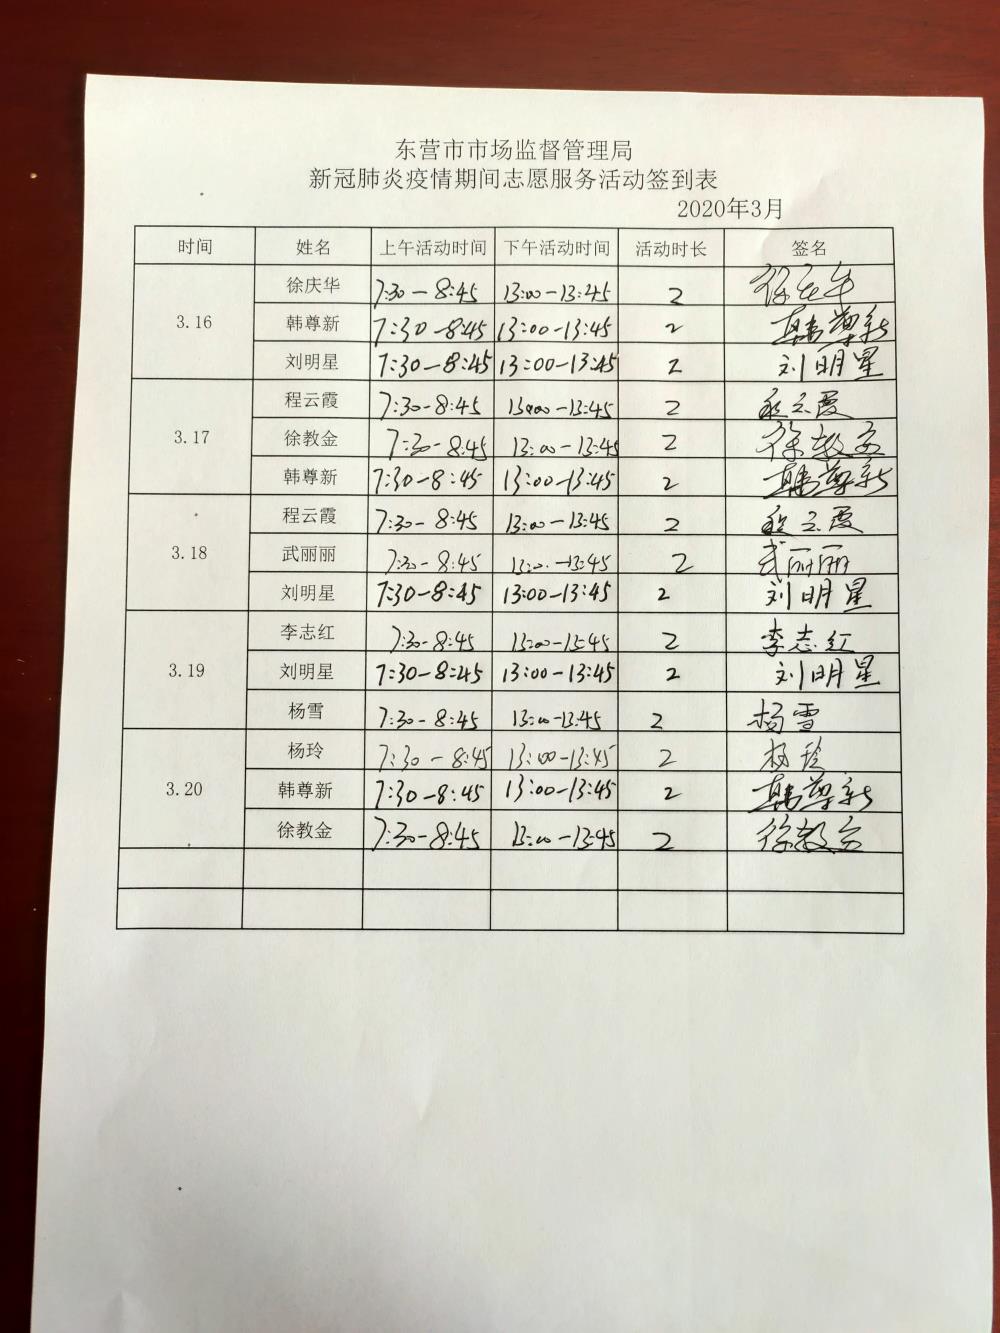 东营市市场监督管理局
新冠肺炎疫情期间志愿服务活动签到表
2020年3月
时间 姓名 上午活动时间 下午活动时间 活动时长 签名
3.16 徐庆华 7:30-8:45 13:00-13:45 2 徐庆华
韩尊新 7:30-8:45 13:00-13:45 2 韩尊新
刘明星 7:30-8:45 13:00-13:45 2 刘明星
3.17 程云霞 7:30-8:45 13:00-13:45 2 程云霞
徐教金 7:30-8:45 13:00-13:45 2 徐教金
韩尊新 7:30-8:45 13:00-13:45 2 韩尊新
3.18 程云霞 7:30-8:45 13:00-13:45 2 程云霞
武丽丽 7:30-8:45 13:00-13:45 2 武丽丽
刘明星 7:30-8:45 13:00-13:45 2 刘明星
3.19 李志红 7:30-8:45 13:00-13:45 2 李志红
刘明星 7:30-8:45 13:00-13:45 2 刘明星
杨雪 7:30-8:45 13:00-13:45 2 杨雪
3.20 杨玲 7:30-8:45 13:00-13:45 2 杨玲
韩尊新 7:30-8:45 13:00-13:45 2 韩尊新
徐教金 7:30-8:45 13:00-13:45 2 徐教金